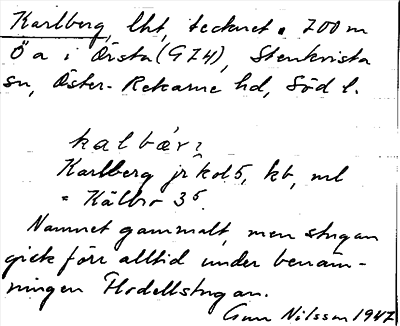 Karlberg, lht, tecknet • 700 m
Ö a i Örsta (G74), Stenkvista
sn, Öster-Rekarne hd, Söd l.
kalbær2
Karlberg jr kol 5, kb, ml
" Kälbo 36.
Namnet gammalt, men stugan
gick förr alltid under benäm-
ningen Flodellstugan.
Gun Nilsson 1947